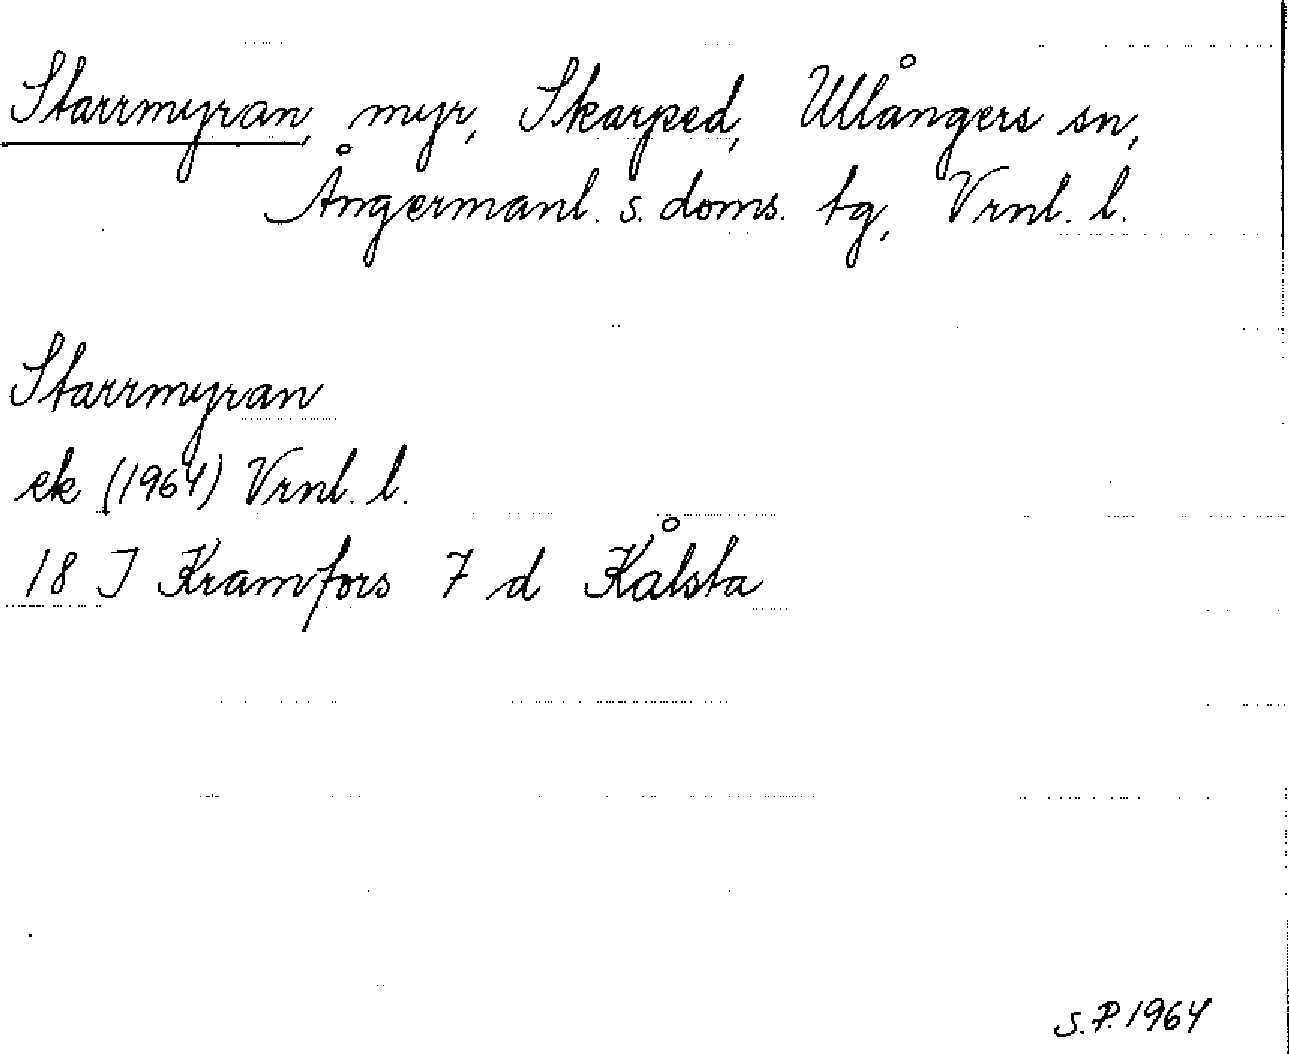 Starrmyran, myr, Skarped, Ullångers sn,
Ångermanl. s. doms. tg, Vrnl. l.
Starrmyran
ek (1964) Vrnl. l.
18 J Kramfors 7 d Kålsta
S.P. 1964